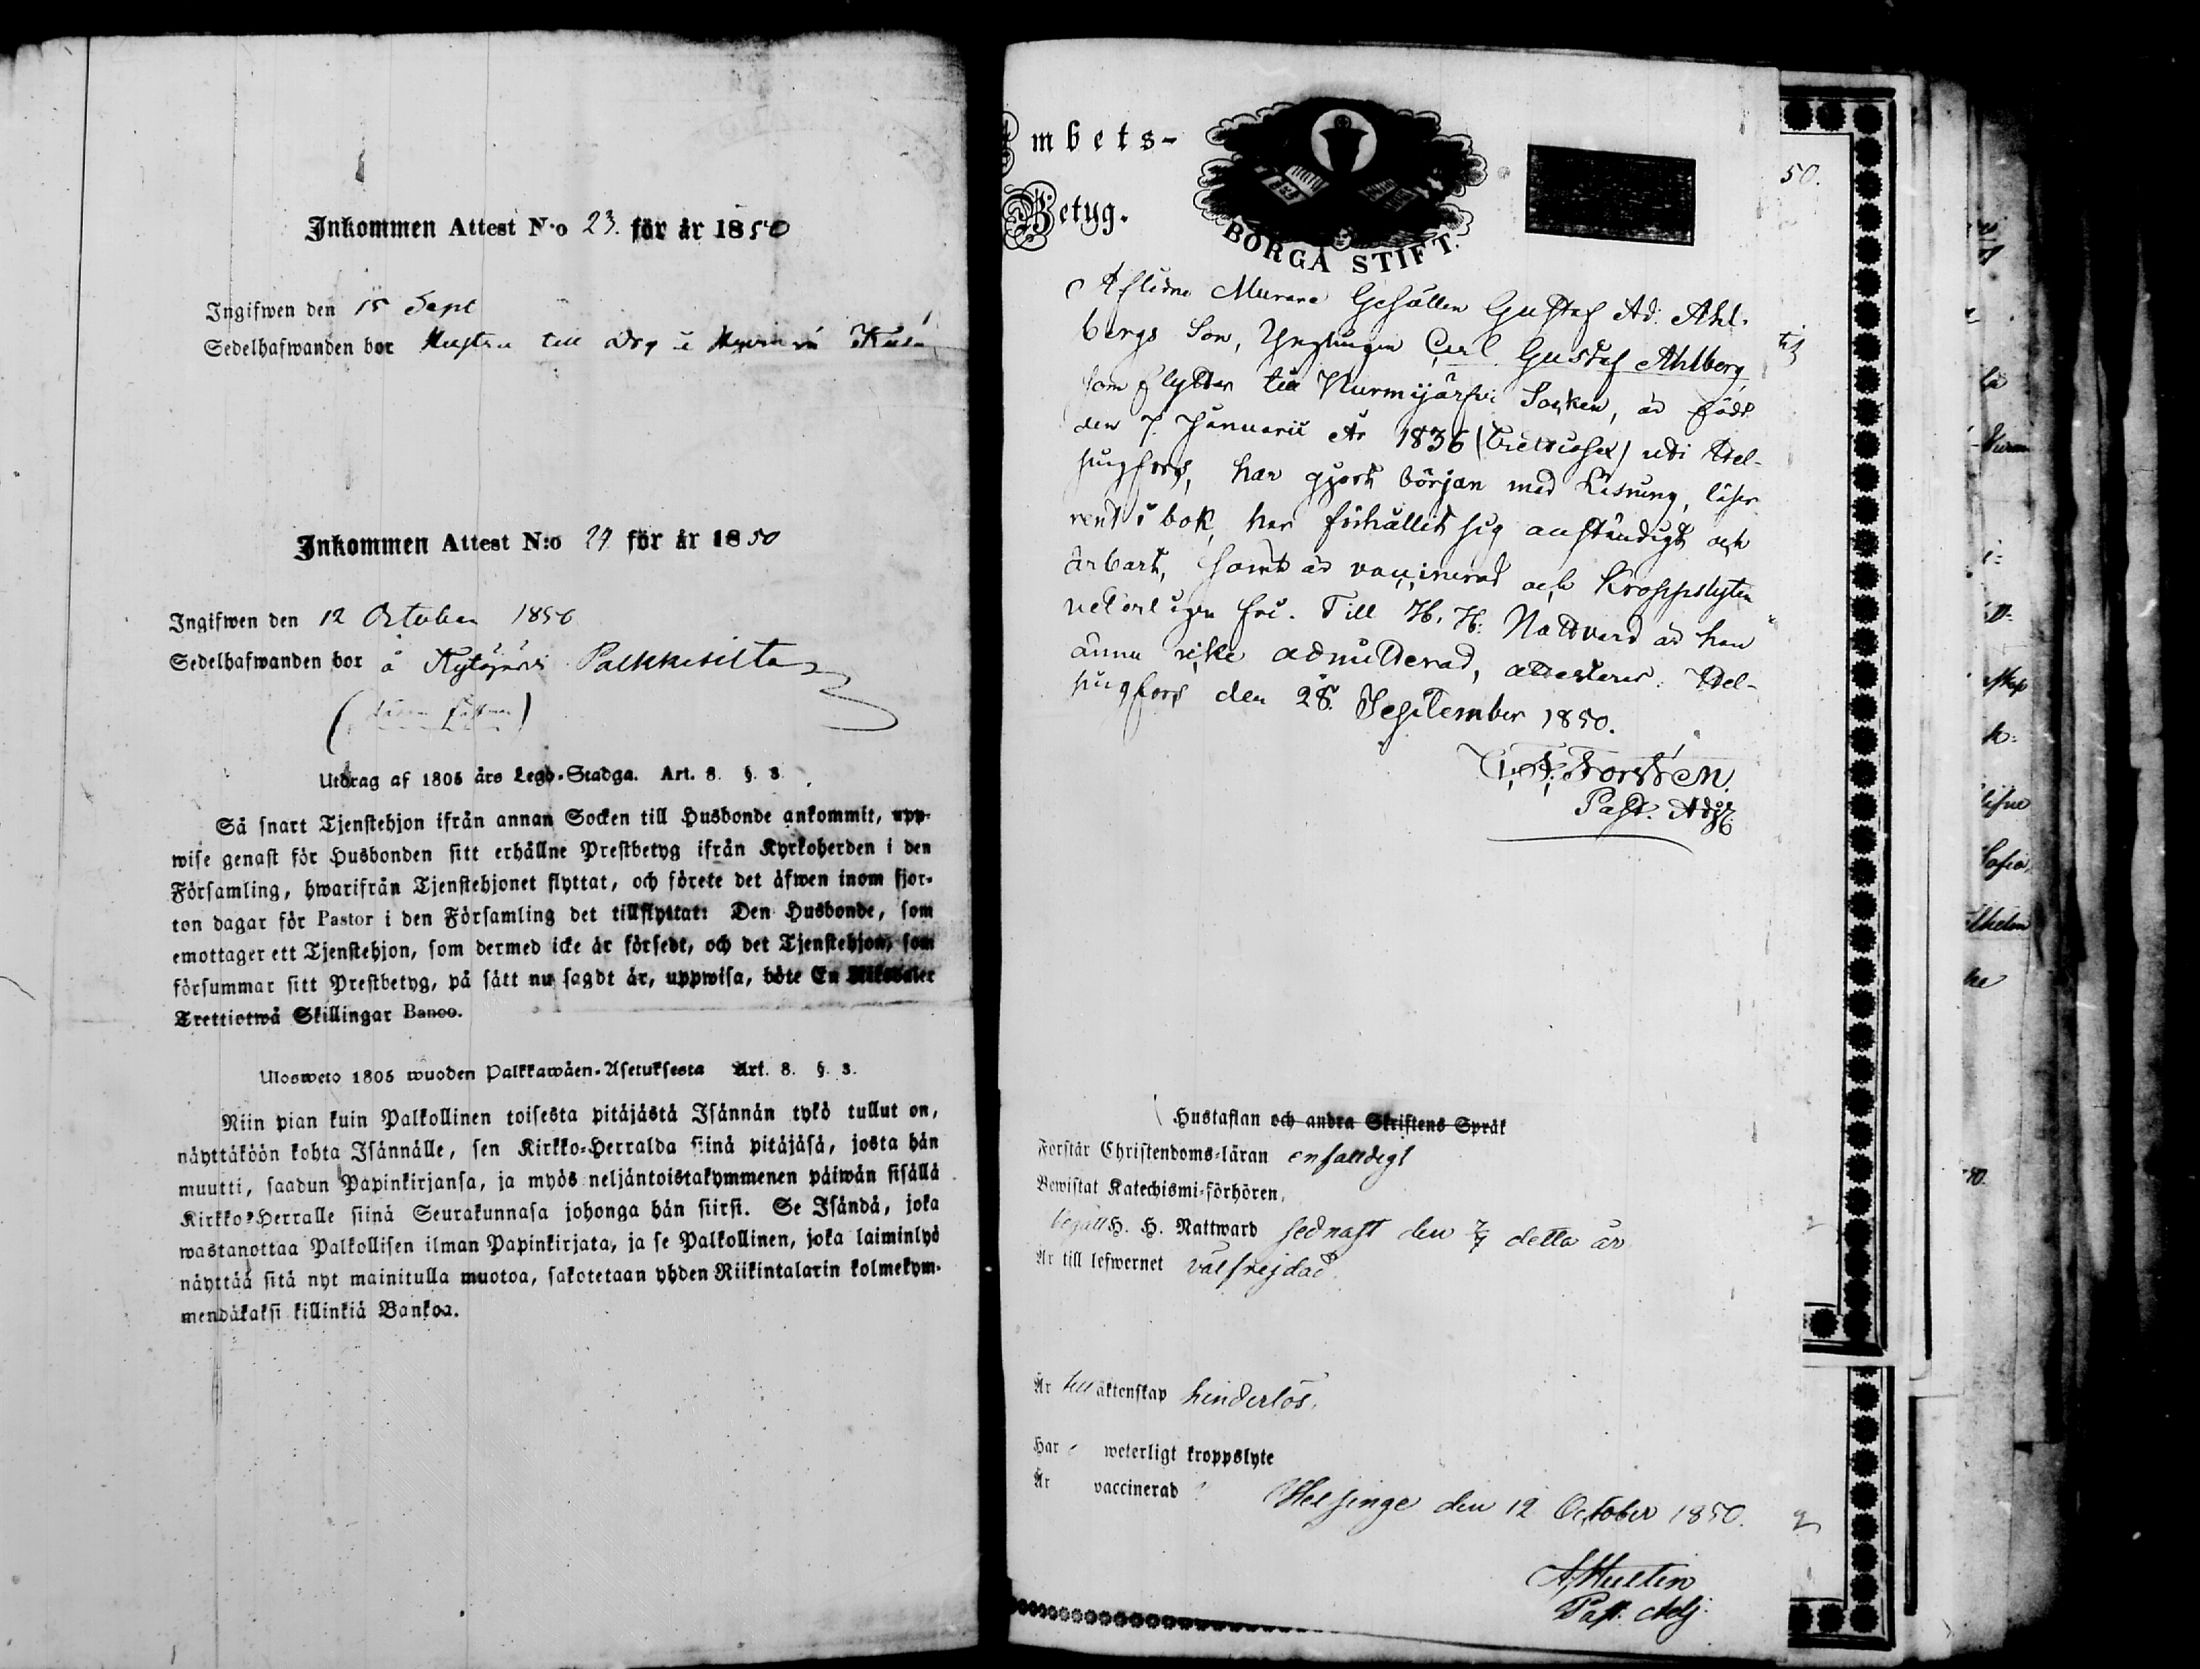 Inkommen Attest N:o 23. för år 1850
Ingifwen den 15 Sept
Sedelhafwanden bor till
Inkommen Attest N:o 24 för år 1850
Ingifwen den 12 October 1850
Sedelhafwanden bor å Kytäjärvi Palkkisilta
Utdrag af 1805 års Lego-Stadga. Art. 8. §. 3.
Så snart Tjenstehjon ifrån annan Socken till Husbonde ankommit, upp-
wise genast för Husbonden sitt erhållne Prestbetyg ifrån Kyrkoherden i den
Församling, hwarifrån Tjenstehjonet flyttat, och förete det äfwen inom fjor-
ton dagar för Pastor i den Församling det tillflyttat: Den Husbonde, som
emottager ett Tjenstehjon, som dermed icke är försedt, och det Tjenstehjon, som
försummar sitt Prestbetyg, på sätt nu sagdt är, uppwisa, böte En Riksdaler
Trettiotwå Skillingar Banco.
Ulosweto 1805 wuoden Palkkawäen-Asetuksesta Art. 8. §. 3.
Niin pian kuin Palkollinen toisesta pitäjästä Isännän tykö tullut on,
näyttäköön kohta Isännälle, sen Kirkko-Herralda siinä pitäjäsä, josta hän
muutti, saadun Papinkirjansa, ja myös neljäntoistakymmenen päiwän sisällä
Kirkko-Herralle siinä Seurakunnasa johonga hän siirsi. Se Isändä, joka
wastanottaa Palkollisen ilman Papinkirjata, ja se Palkollinen, joka laiminlyö
näyttää sitä nyt mainitulla muotoa, sakotetaan yhden Riikintalarin kolmekym-
mendäkaksi killinkiä Bankoa.
Embets-
Betyg.
BORGÅ STIFT.
Aflidne Murare Gesällen Gustaf Ad. Ahl-
bergs Son, Ynglingen Carl Gustaf Ahlberg,
som flyttar till Nurmijärfvi Socken, är född
den 7. Januarii År 1836 (trettiosex) uti Hel-
singfors, har gjort början med Läsning, läser
rent i bok, har förhållit sig anständigt och
ärbart, samt är vaccinerad och kroppslyten
veterligen fri. Till H. H. Nattvard är han
ännu icke admitterad, attesteras. Hel-
singfors den 28. September 1850.
Forstén.
Past. Adj.
Hustaflan och andra Skriftens Språk
Förstår Christendoms-läran enfaldigt
Bewistat Katechismi-förhören,
Begått H. H. Nattward sednast den 7/7 detta år
Är till lefwernet välfrejdad.
Är till äktenskap hinderlös.
Har weterligt kroppslyte
Är vaccinerad
Helsinge den 12 October 1850.
A. Hultin
Past. Adj.
50.